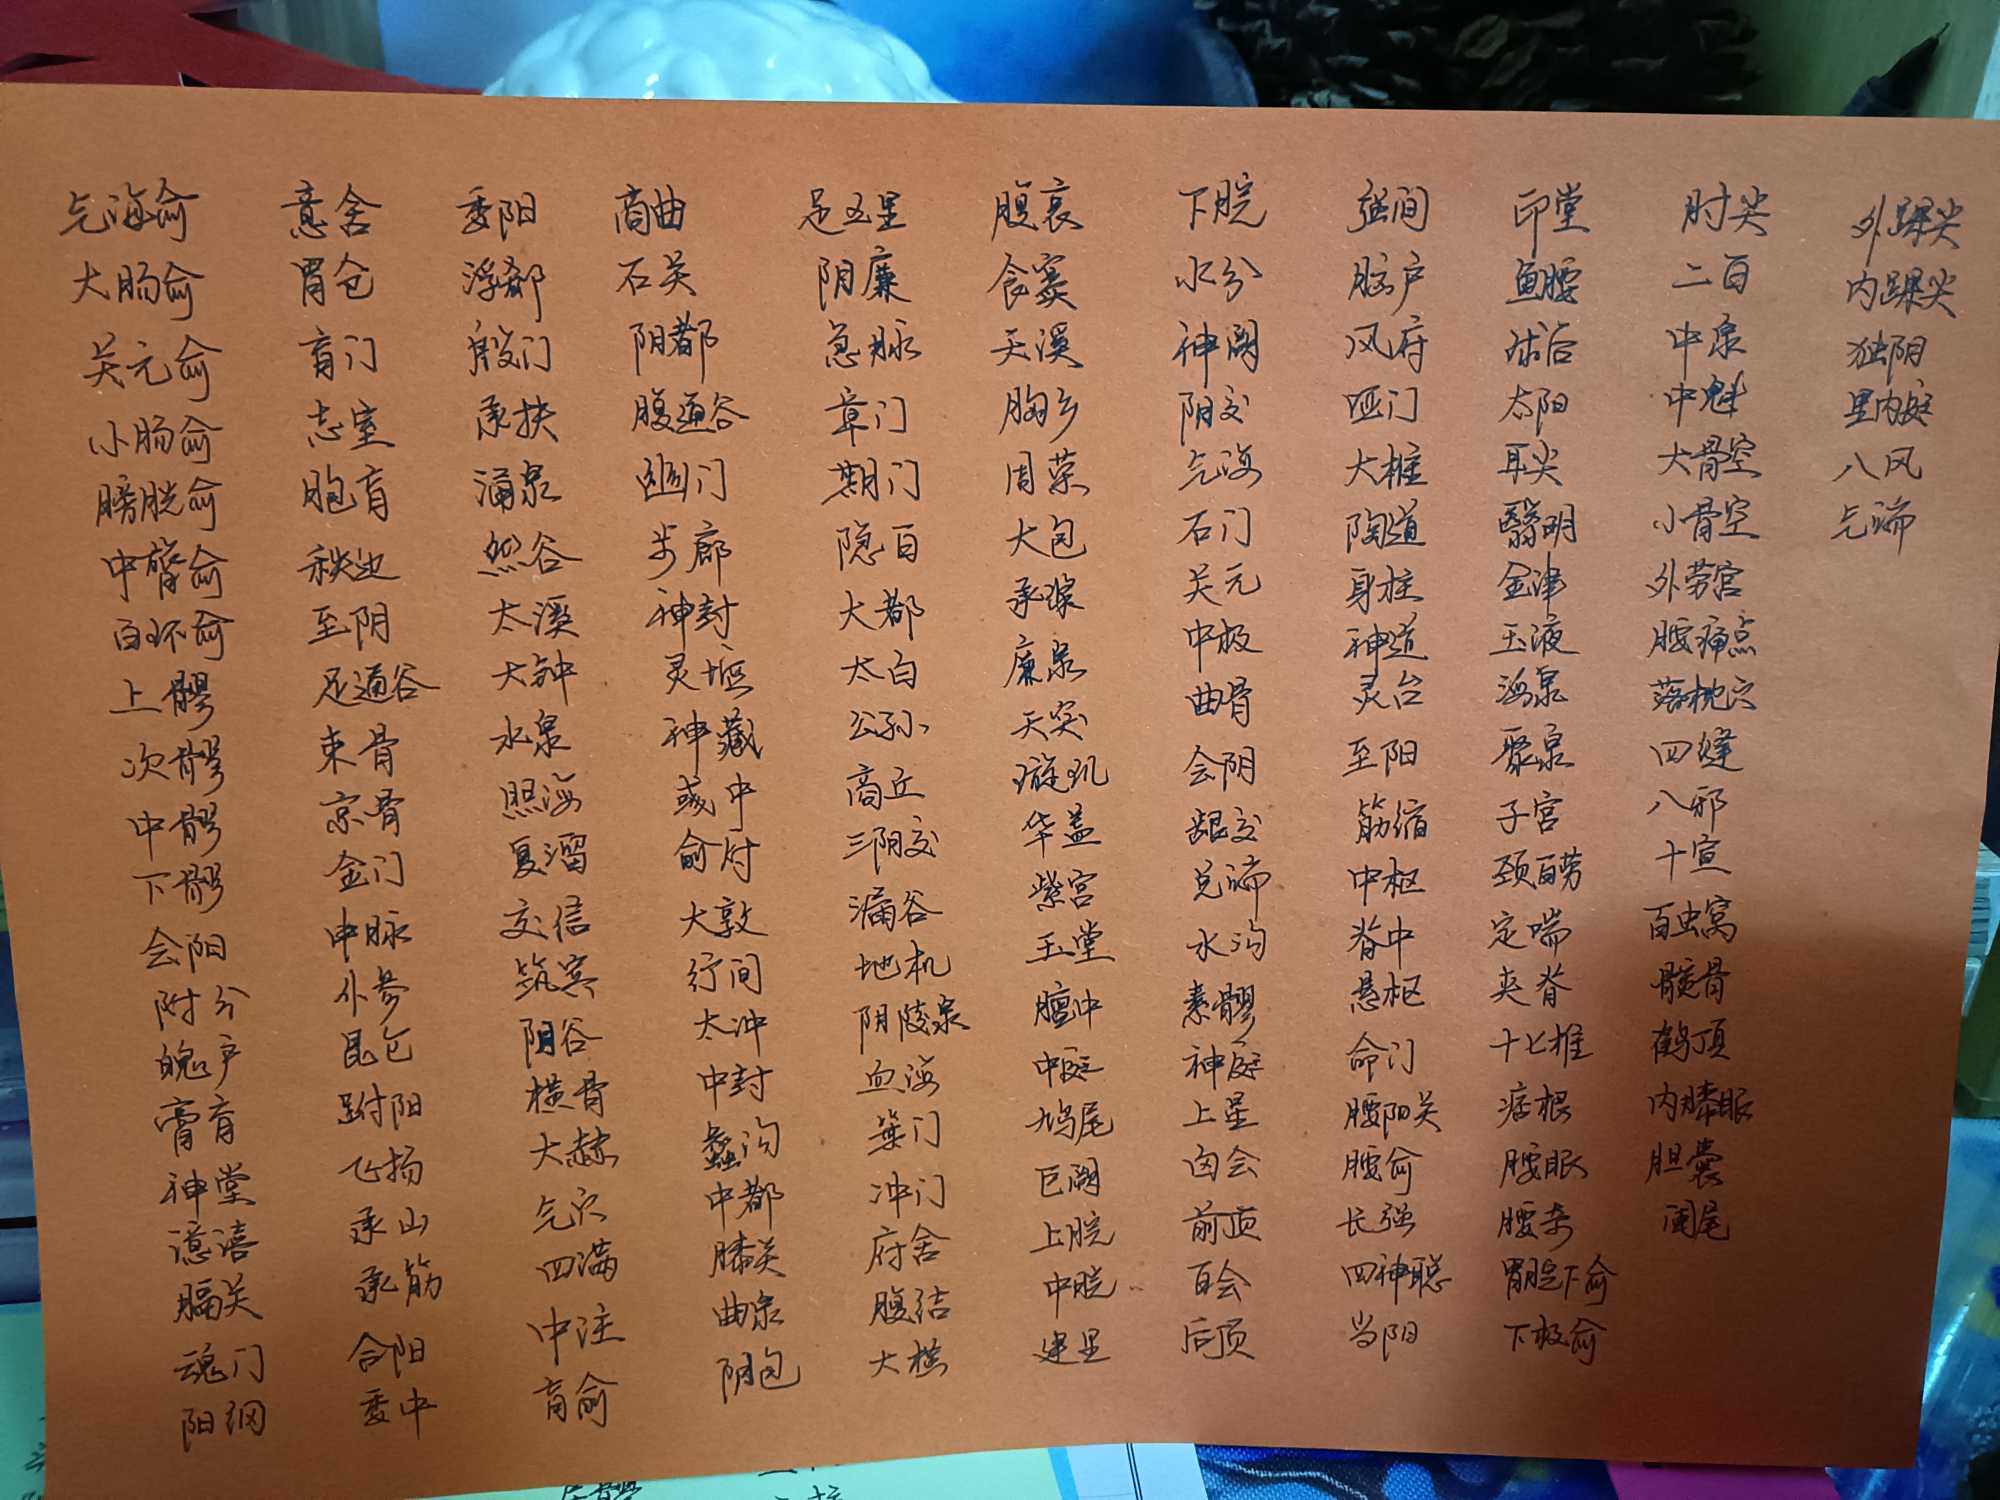 气海俞
大肠俞
关元俞
小肠俞
膀胱俞
中膂俞
白环俞
上髎
次髎
中髎
下髎
会阳
附分
魄户
膏肓
神堂
譩譆
膈关
魂门
阳纲
意舍
胃仓
肓门
志室
胞肓
秩边
至阴
足通谷
束骨
京骨
金门
申脉
仆参
昆仑
跗阳
飞扬
承山
承筋
合阳
委中
委阳
浮郄
殷门
承扶
涌泉
然谷
太溪
大钟
水泉
照海
复溜
交信
筑宾
阴谷
横骨
大赫
气穴
四满
中注
肓俞
商曲
石关
阴都
腹通谷
幽门
步廊
神封
灵墟
神藏
彧中
俞府
大敦
行间
太冲
中封
蠡沟
中都
膝关
曲泉
阴包
足五里
阴廉
急脉
章门
期门
隐白
大都
太白
公孙
商丘
三阴交
漏谷
地机
阴陵泉
血海
箕门
冲门
府舍
腹结
大横
腹哀
食窦
天溪
胸乡
周荣
大包
承浆
廉泉
天突
璇玑
华盖
紫宫
玉堂
膻中
中庭
鸠尾
巨阙
上脘
中脘
建里
下脘
水分
神阙
阴交
气海
石门
关元
中极
曲骨
会阴
龈交
兑端
水沟
素髎
神庭
上星
囟会
前顶
百会
后顶
强间
脑户
风府
哑门
大椎
陶道
身柱
神道
灵台
至阳
筋缩
中枢
脊中
悬枢
命门
腰阳关
腰俞
长强
四神聪
当阳
印堂
鱼腰
球后
太阳
耳尖
翳明
金津
玉液
海泉
聚泉
子宫
颈百劳
定喘
夹脊
十七椎
痞根
腰眼
腰奇
胃脘下俞
下极俞
肘尖
二白
中泉
中魁
大骨空
小骨空
外劳宫
腰痛点
落枕穴
四缝
八邪
十宣
百虫窝
髋骨
鹤顶
内膝眼
胆囊
阑尾
外踝尖
内踝尖
独阴
里内庭
八风
气端